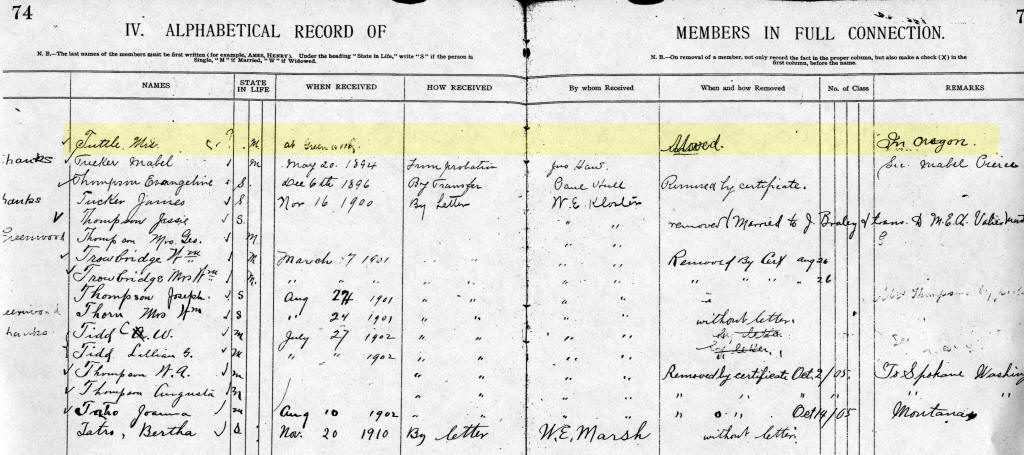 74
IV. ALPHABETICAL RECORD OF MEMBERS IN FULL CONNECTION.
N. B.—The last names of the members must be first written (for example, AMES, HENRY). Under the heading "State in Life," write "S" if the person is
Single, "M" if Married, "W" if Widowed.
N. B.—On removal of a member, not only record the fact in the proper column, but also make a check (X) in the
first column, before the name.
NAMES STATE IN LIFE WHEN RECEIVED HOW RECEIVED By whom Received When and how Removed No. of Class REMARKS
Tuttle, M at Greenwood, Moved. In oregon.
hanks Tucker Mabel M May 20. 1894 From probation Jno Haw. See Mabel Pierce
Thompson Evangeline S. Dec 6th 1896 By Transfer Removed by certificate.
hanks Tucker James S Nov 16 1900 By Letter W.E. Kloster
Thompson Jessie S. " " " removed (Married to J Braley
Greenwood Thompson Mrs. Geo. M. " " "
Trowbridge Wm M March 7 1901 " " " Removed By Cert aug 26
Trowbridge Mrs Wm M. " " " " " " " 26
Thompson Joseph. S Aug 24 1901 " " "
eenwood Thorn Mrs Wm S " 24 1901 " " " without letter.
hanks Tidd C W. m July 27 1902 " " "
Tidd Lillian G. m " " 1902 " " "
Thompson W. A. m " " " Removed by certificate Oct 2/05. To Spokane Washing
Thompson Augusta m " " " " " "
Joanna m Aug 10 1902 " " " " Oct 14/05 Montana
Tatro, Bertha S Nov. 20 1910 By letter W.E. Marsh without letter.